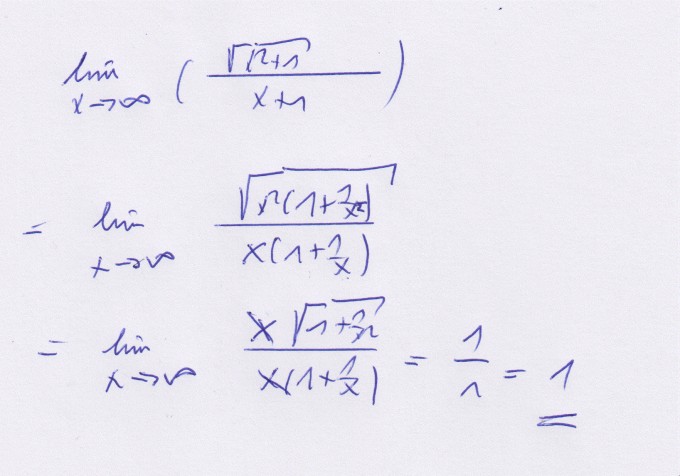 lim x→∞ ( √(x²+1) / (x+1) )
= lim x→∞ √(x²(1+1/x²)) / (x(1+1/x))
= lim x→∞ x √(1+1/x²) / (x(1+1/x)) = 1/1 = 1